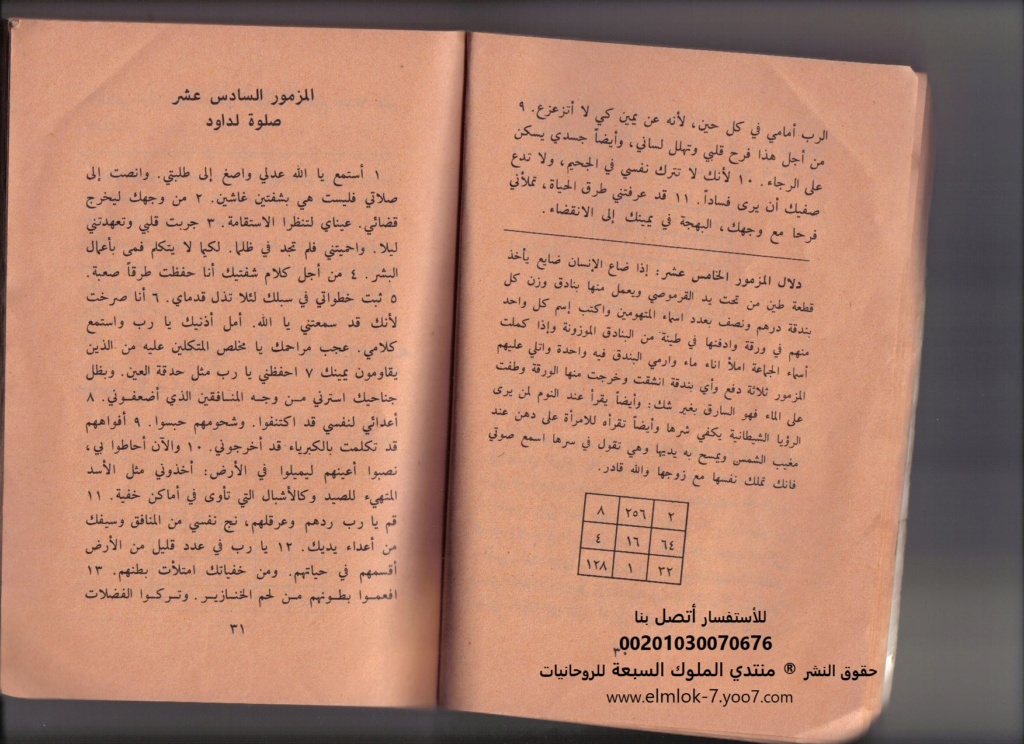 الرب أمامي في كل حين، لأنه عن يمين كي لا أتزعزع. ٩
من أجل هذا فرح قلبي وتهلل لساني، وأيضاً جسدي يسكن
على الرجاء. ١٠ لأنك لا تترك نفسي في الجحيم، ولا تدع
صفيك أن يرى فساداً. ١١ قد عرفتني طرق الحياة، تملأني
فرحا مع وجهك، البهجة في يمينك إلى الانقضاء.
دلال المزمور الخامس عشر: إذا ضاع الإنسان ضايع يأخذ
قطعة طين من تحت يد القرموصي ويعمل منها بنادق وزن كل
بندقة درهم ونصف بعدد اسماء المتهومين واكتب إسم كل واحد
منهم في ورقة وادفنها في طينة من البنادق الموزونة وإذا كملت
أسماء الجماعة املأ اناء ماء وارمي البندق فيه واحدة واتلي عليهم
المزمور ثلاثة دفع وأي بندقة انشقت وخرجت منها الورقة وطفت
على الماء فهو السارق بغير شك: وأيضاً يقرأ عند النوم لمن يرى
الرؤيا الشيطانية يكفي شرها وأيضاً تقرأه للامرأة على دهن عند
مغيب الشمس ويمسح به يديها وهي تقول في سرها اسمع صوتي
فانك تملك نفسها مع زوجها والله قادر.
٢ ٢٥٦ ٨
٦٤ ١٦ ٤
٣٢ ١ ١٢٨
المزمور السادس عشر
صلوة لداود
١ أستمع يا الله عدلي واصغ إلى طلبتي. وانصت إلى
صلاتي فليست هي بشفتين غاشين. ٢ من وجهك ليخرج
قضائي. عيناي لتنظرا الاستقامة. ٣ جربت قلبي وتعهدتني
ليلا. واحميتني فلم تجد في ظلما. لكيما لا يتكلم فمى بأعمال
البشر. ٤ من أجل كلام شفتيك أنا حفظت طرقاً صعبة.
٥ ثبت خطواتي في سبلك لئلا تذل قدماي. ٦ أنا صرخت
لأنك قد سمعتني يا الله. أمل أذنيك يا رب واستمع
كلامي. عجب مراحمك يا مخلص المتكلين عليه من الذين
يقاومون يمينك ٧ احفظني يا رب مثل حدقة العين. وبظل
جناحيك استرني مـن وجـه المنـافقين الذي أضعفـوني. ٨
أعدائي لنفسي قد اكتنفوا. وشحومهم حبسوا. ٩ أفواههم
قد تكلمت بالكبرياء قد أخرجوني. ١٠ والآن أحاطوا بي،
نصبوا أعينهم ليميلوا في الأرض: أخذوني مثل الأسد
المتهيء للصيد وكالأشبال التي تأوى في أماكن خفية. ١١
قم يا رب ردهم وعرقلهم، نج نفسي من المنافق وسيفك
من أعداء يديك. ١٢ يا رب في عدد قليل من الأرض
أقسمهم في حياتهم. ومن خفياتك امتلأت بطنهم. ١٣
افعمـوا بطـونهم مـن لحم الخنـازيـر. وتـركـوا الفضلات
٣١
للأستفسار أتصل بنا
00201030070676
حقوق النشر ® منتدي الملوك السبعة للروحانيات
www.elmlok-7.yoo7.com